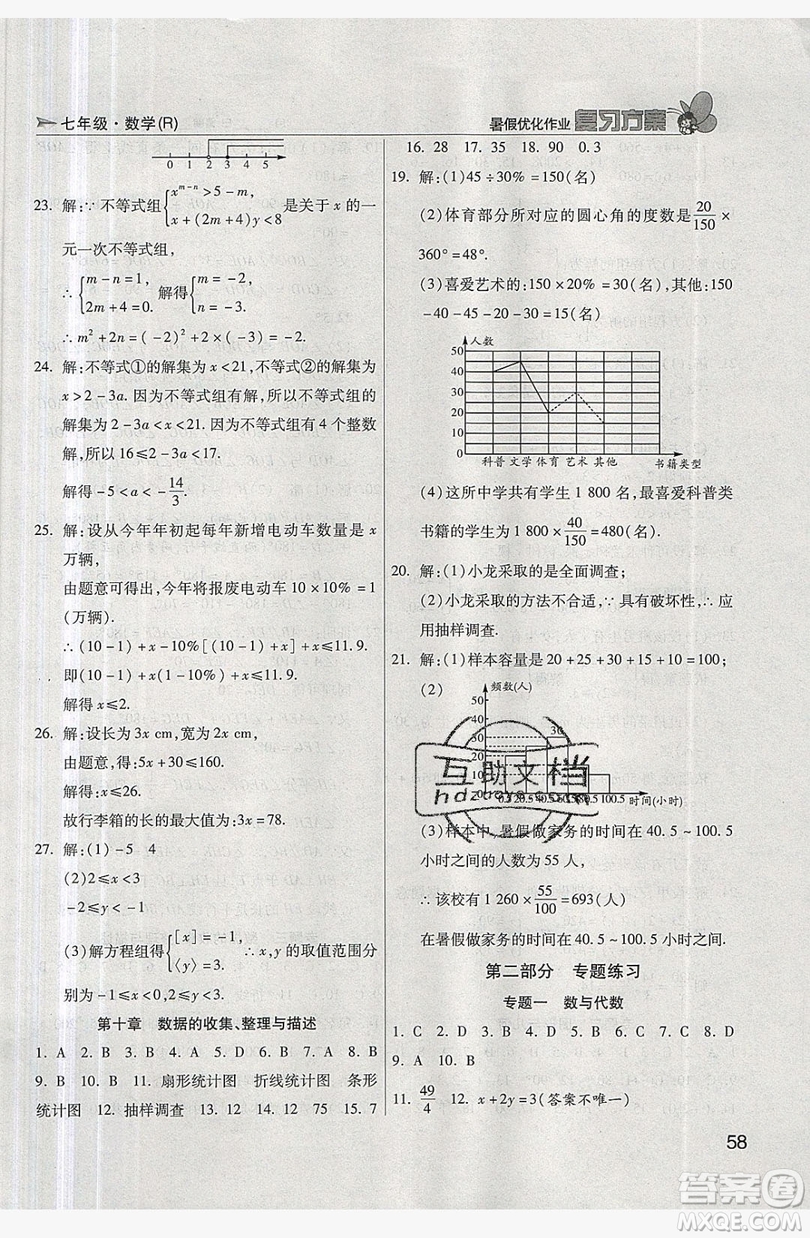 七年级·数学(R)
暑假优化作业 复习方案
0 1 2 3 4 5
23. 解:∵不等式组{x^{m-n}>5-m, x+(2m+4)y<8 是关于 x 的一
元一次不等式组,
∴{m-n=1, 2m+4=0. 解得{m=-2, n=-3.
∴m²+2n=(-2)²+2×(-3)=-2.
24. 解:不等式①的解集为 x<21,不等式②的解集为
x>2-3a. 因为不等式组有解,所以不等式组的
解集为 2-3a<x<21. 因为不等式组有 4 个整数
解,所以 16≤2-3a<17.
解得-5<a<-14/3.
25. 解:设从今年年初起每年新增电动车数量是 x
万辆,
由题意可得出,今年将报废电动车 10×10%=1
(万辆).
∴(10-1)+x-10%[(10-1)+x]≤11.9.
即(10-1)+x-10%(10-1)+x≤11.9.
解得 x≤2.
26. 解:设长为 3x cm,宽为 2x cm,
由题意,得:5x+30≤160.
解得:x≤26.
故行李箱的长的最大值为:3x=78.
27. 解:(1)-5 4
(2)2≤x<3
-2≤y<-1
(3)解方程组得{[x]=-1, ⟨y⟩=3, ∴x,y 的取值范围分
别为-1≤x<0,2≤y<3.
第十章 数据的收集、整理与描述
1. A 2. B 3. D 4. B 5. D 6. B 7. A 8. B
9. B 10. B 11. 扇形统计图 折线统计图 条形
统计图 12. 抽样调查 13. 12 14. 12 75 15. 7
16. 28 17. 35 18. 90 0.3
19. 解:(1)45÷30%=150(名)
(2)体育部分所对应的圆心角的度数是20/150×
360°=48°.
(3)喜爱艺术的:150×20%=30(名),其他:150
-40-45-20-30=15(名)
人数
50
40
30
20
10
0
科普 文学 体育 艺术 其他 书籍类型
(4)这所中学共有学生 1 800 名,最喜爱科普类
书籍的学生为 1 800×40/150=480(名).
20. 解:(1)小龙采取的是全面调查;
(2)小龙采取的方法不合适,∵具有破坏性,∴应
用抽样调查.
21. 解:(1)样本容量是 20+25+30+15+10=100;
(2)
频数(人)
50
40
30
20
10
0
30
时间(小时)
互助文档
(3)样本中,暑假做家务的时间在 40.5~100.5
小时之间的人数为 55 人,
∴该校有 1 260×55/100=693(人)
在暑假做家务的时间在 40.5~100.5 小时之间.
第二部分 专题练习
专题一 数与代数
1. C 2. D 3. B 4. D 5. B 6. C 7. C 8. D
9. A 10. B
11. 49/4 12. x+2y=3(答案不唯一)
58
答案圈
MXQE.COM